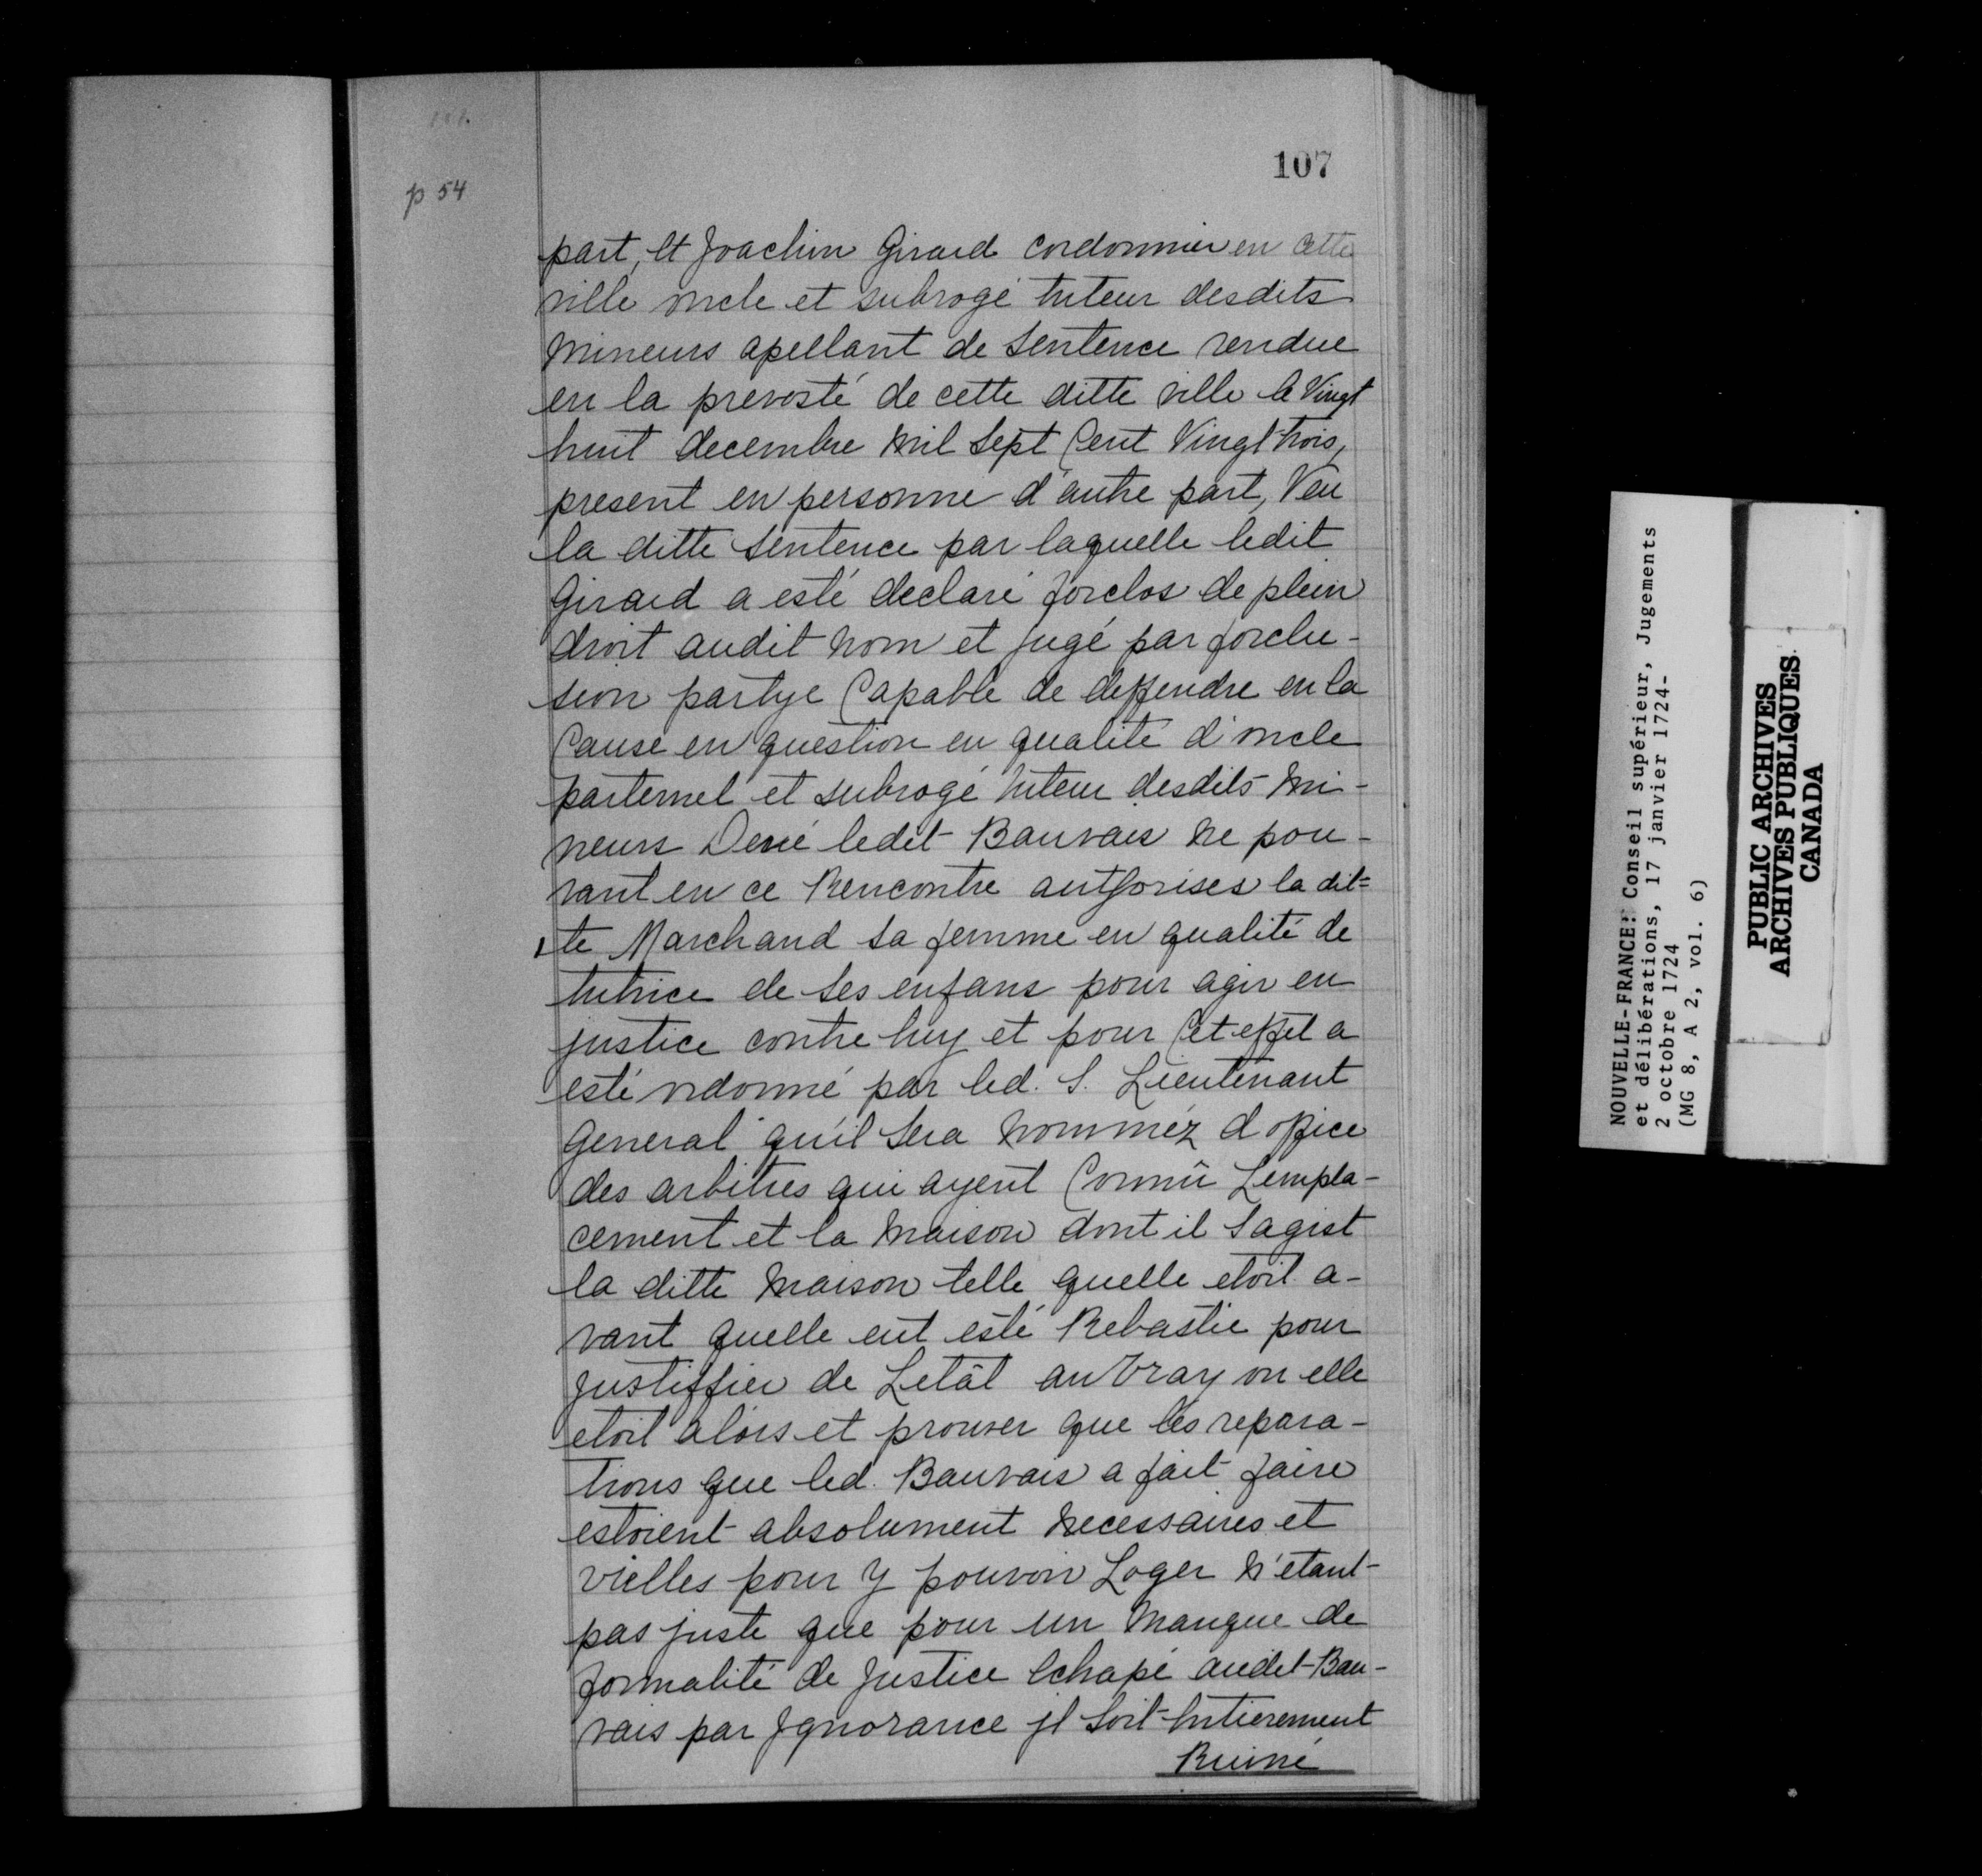 107
p 54
part, et Joachim Girard cordonnier en cette
ville oncle et subrogé tuteur desdits
Mineurs apellant de Sentence rendue
en la prevosté de cette ditte ville le Vingt
huit decembre Mil Sept Cent Vingt trois,
present en personne d'autre part, Veu
la ditte Sentence par laquelle ledit
Girard a esté declaré forclos de plein
droit audit Nom et jugé par forclu-
sion partye Capable de deffendre en la
Cause en question en qualité d'oncle
parternel et subrogé tuteur desdits Mi-
neurs ledit Bauvais Ne pou-
vant en ce Rencontre authorises la dit=
te Marchand sa femme en qualité de
tutrice de ses enfans pour agir en
justice contre luy et pour Cet effet a
esté ordonné par led. S. Lieutenant
General qu'il Sera Nomméz d office
des arbitres qui ayent Connû Lempla-
cement et la Maison dont il Sagist
la ditte Maison telle quelle etoit a-
vant quelle eut esté Rebastie pour
justiffier de Letât au Vray ou elle
etoit alors et prouver que les repara-
tions que led. Bauvais a fait faire
estoient absolument Necessaires et
vielles pour y pouvoir Loger N'etant
pas juste que pour un Manque de
formalité de Justice Echapé audit Bau-
vais par Jgnorance jl Soit Entierement
Ruiné
NOUVELLE-FRANCE: Conseil supérieur, Jugements
et délibérations, 17 janvier 1724-
2 octobre 1724
(MG 8, A 2, vol. 6)
PUBLIC ARCHIVES
ARCHIVES PUBLIQUES
CANADA